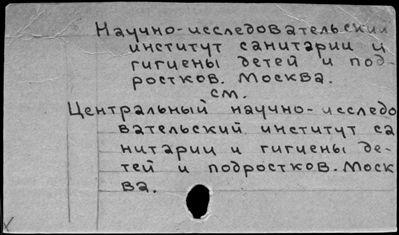 Научно-исследовательский
институт санитарии и
гигиены детей и под-
ростков. Москва.
см.
Центральный научно-исследо
вательский институт са
нитарии и гигиены де-
тей и подростков. Моск
ва.